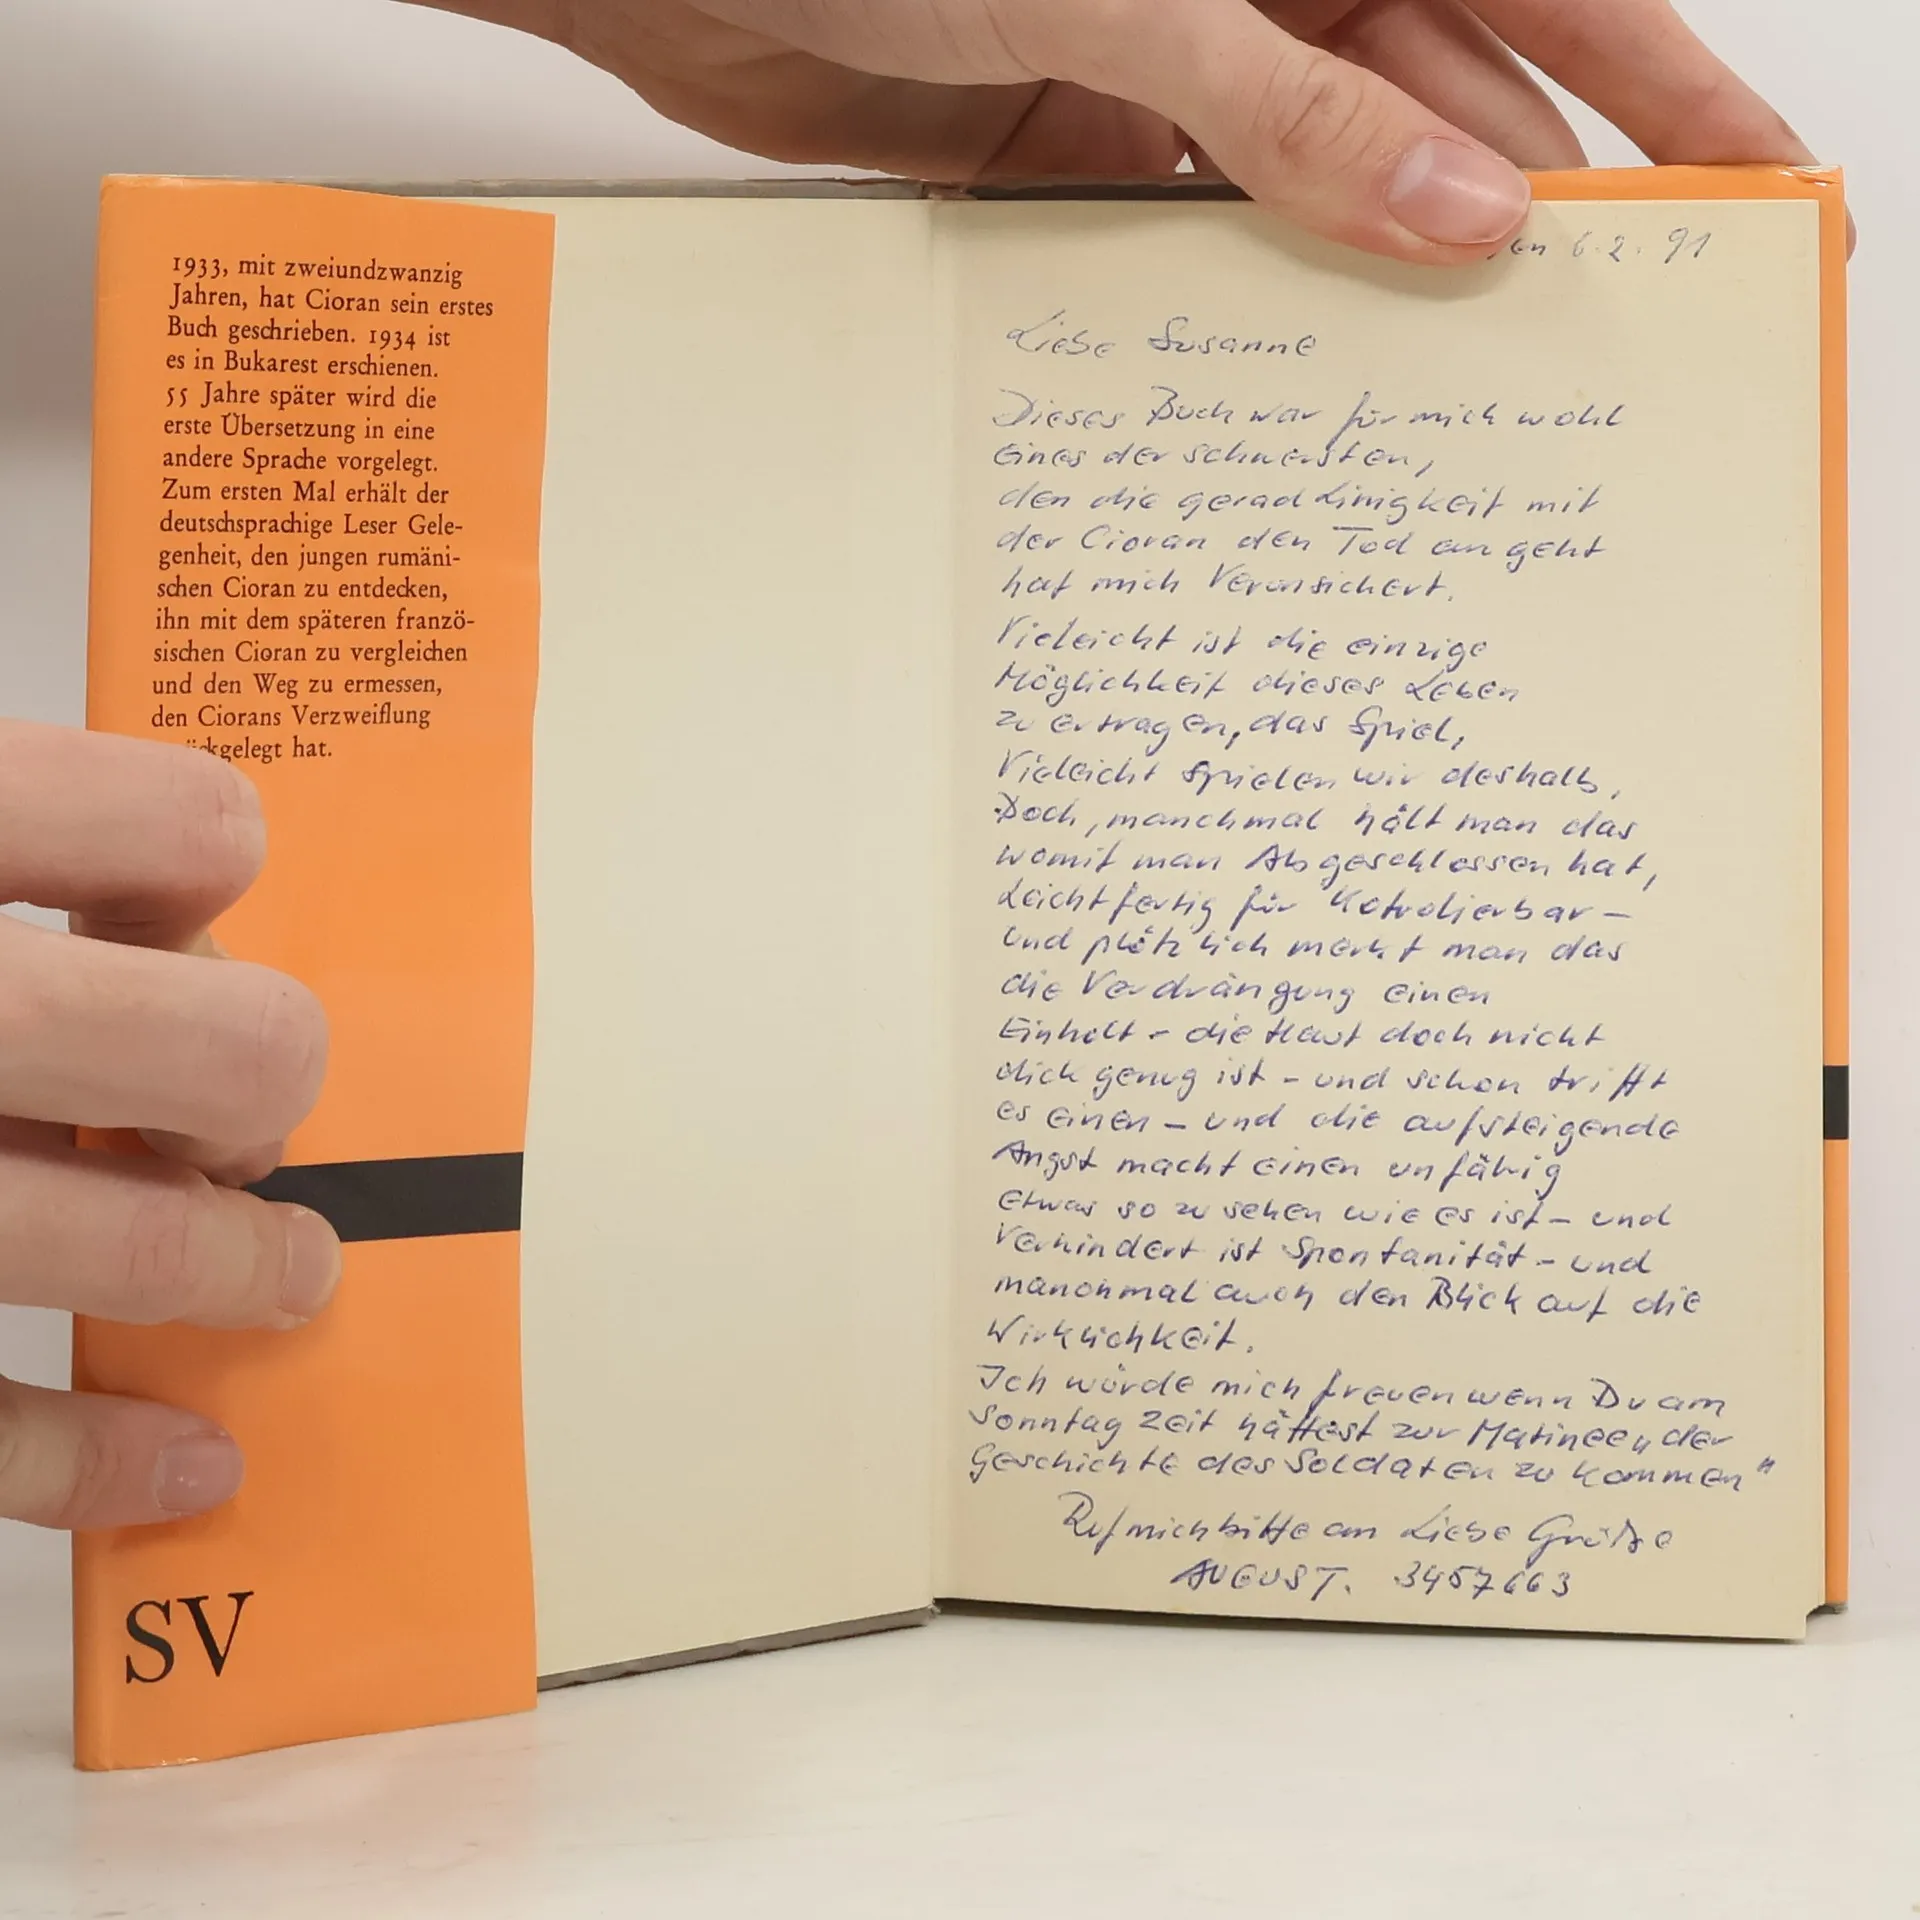 1933, mit zweiundzwanzig
Jahren, hat Cioran sein erstes
Buch geschrieben. 1934 ist
es in Bukarest erschienen.
55 Jahre später wird die
erste Übersetzung in eine
andere Sprache vorgelegt.
Zum ersten Mal erhält der
deutschsprachige Leser Gele-
genheit, den jungen rumäni-
schen Cioran zu entdecken,
ihn mit dem späteren franzö-
sischen Cioran zu vergleichen
und den Weg zu ermessen,
den Ciorans Verzweiflung
ückgelegt hat.
SV
en 6.2.91
Liebe Susanne
Dieses Buch war für mich wohl
Eines der schwersten,
den die geradLinigkeit mit
der Cioran den Tod angeht
hat mich Verunsichert.
Vieleicht ist die einzige
Möglichkeit dieses Leben
zu ertragen, das Spiel,
Vieleicht spielen wir deshalb,
Doch, manchmal hält man das
womit man Abgeschlossen hat,
Leichtfertig für Kotrolierbar –
Und plötzlich merkt man das
die Verdrängung einen
Einholt – die Haut doch nicht
dick genug ist – und schon trifft
es einen – und die aufsteigende
Angst macht einen unfähig
etwas so zu sehen wie es ist – und
Verhindert ist Spontanität – und
manchmal auch den Blick auf die
Wirklichkeit.
Ich würde mich freuen wenn Du am
Sonntag Zeit hättest zur Matinee „der
Geschichte des Soldaten zu kommen"
Ruf mich bitte an Liebe Grüße
AUGUST. 3457663